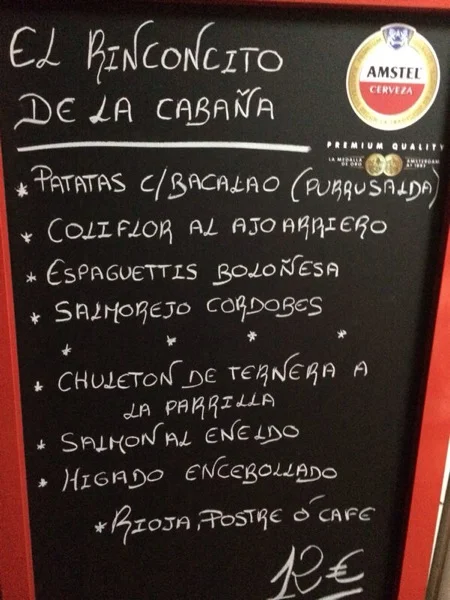 EL RINCONCITO
DE LA CABAÑA
AMSTEL
CERVEZA
PREMIUM QUALITY
LA MEDALLA DE ORO
AMSTERDAM Aº 1883
* PATATAS C/BACALAO (PURRUSALDA)
* COLIFLOR AL AJOARRIERO
* ESPAGUETTIS BOLOÑESA
* SALMOREJO CORDOBES
* * * *
* CHULETON DE TERNERA A
LA PARRILLA
* SALMON AL ENELDO
* HIGADO ENCEBOLLADO
* RIOJA, POSTRE Ó CAFE
12€